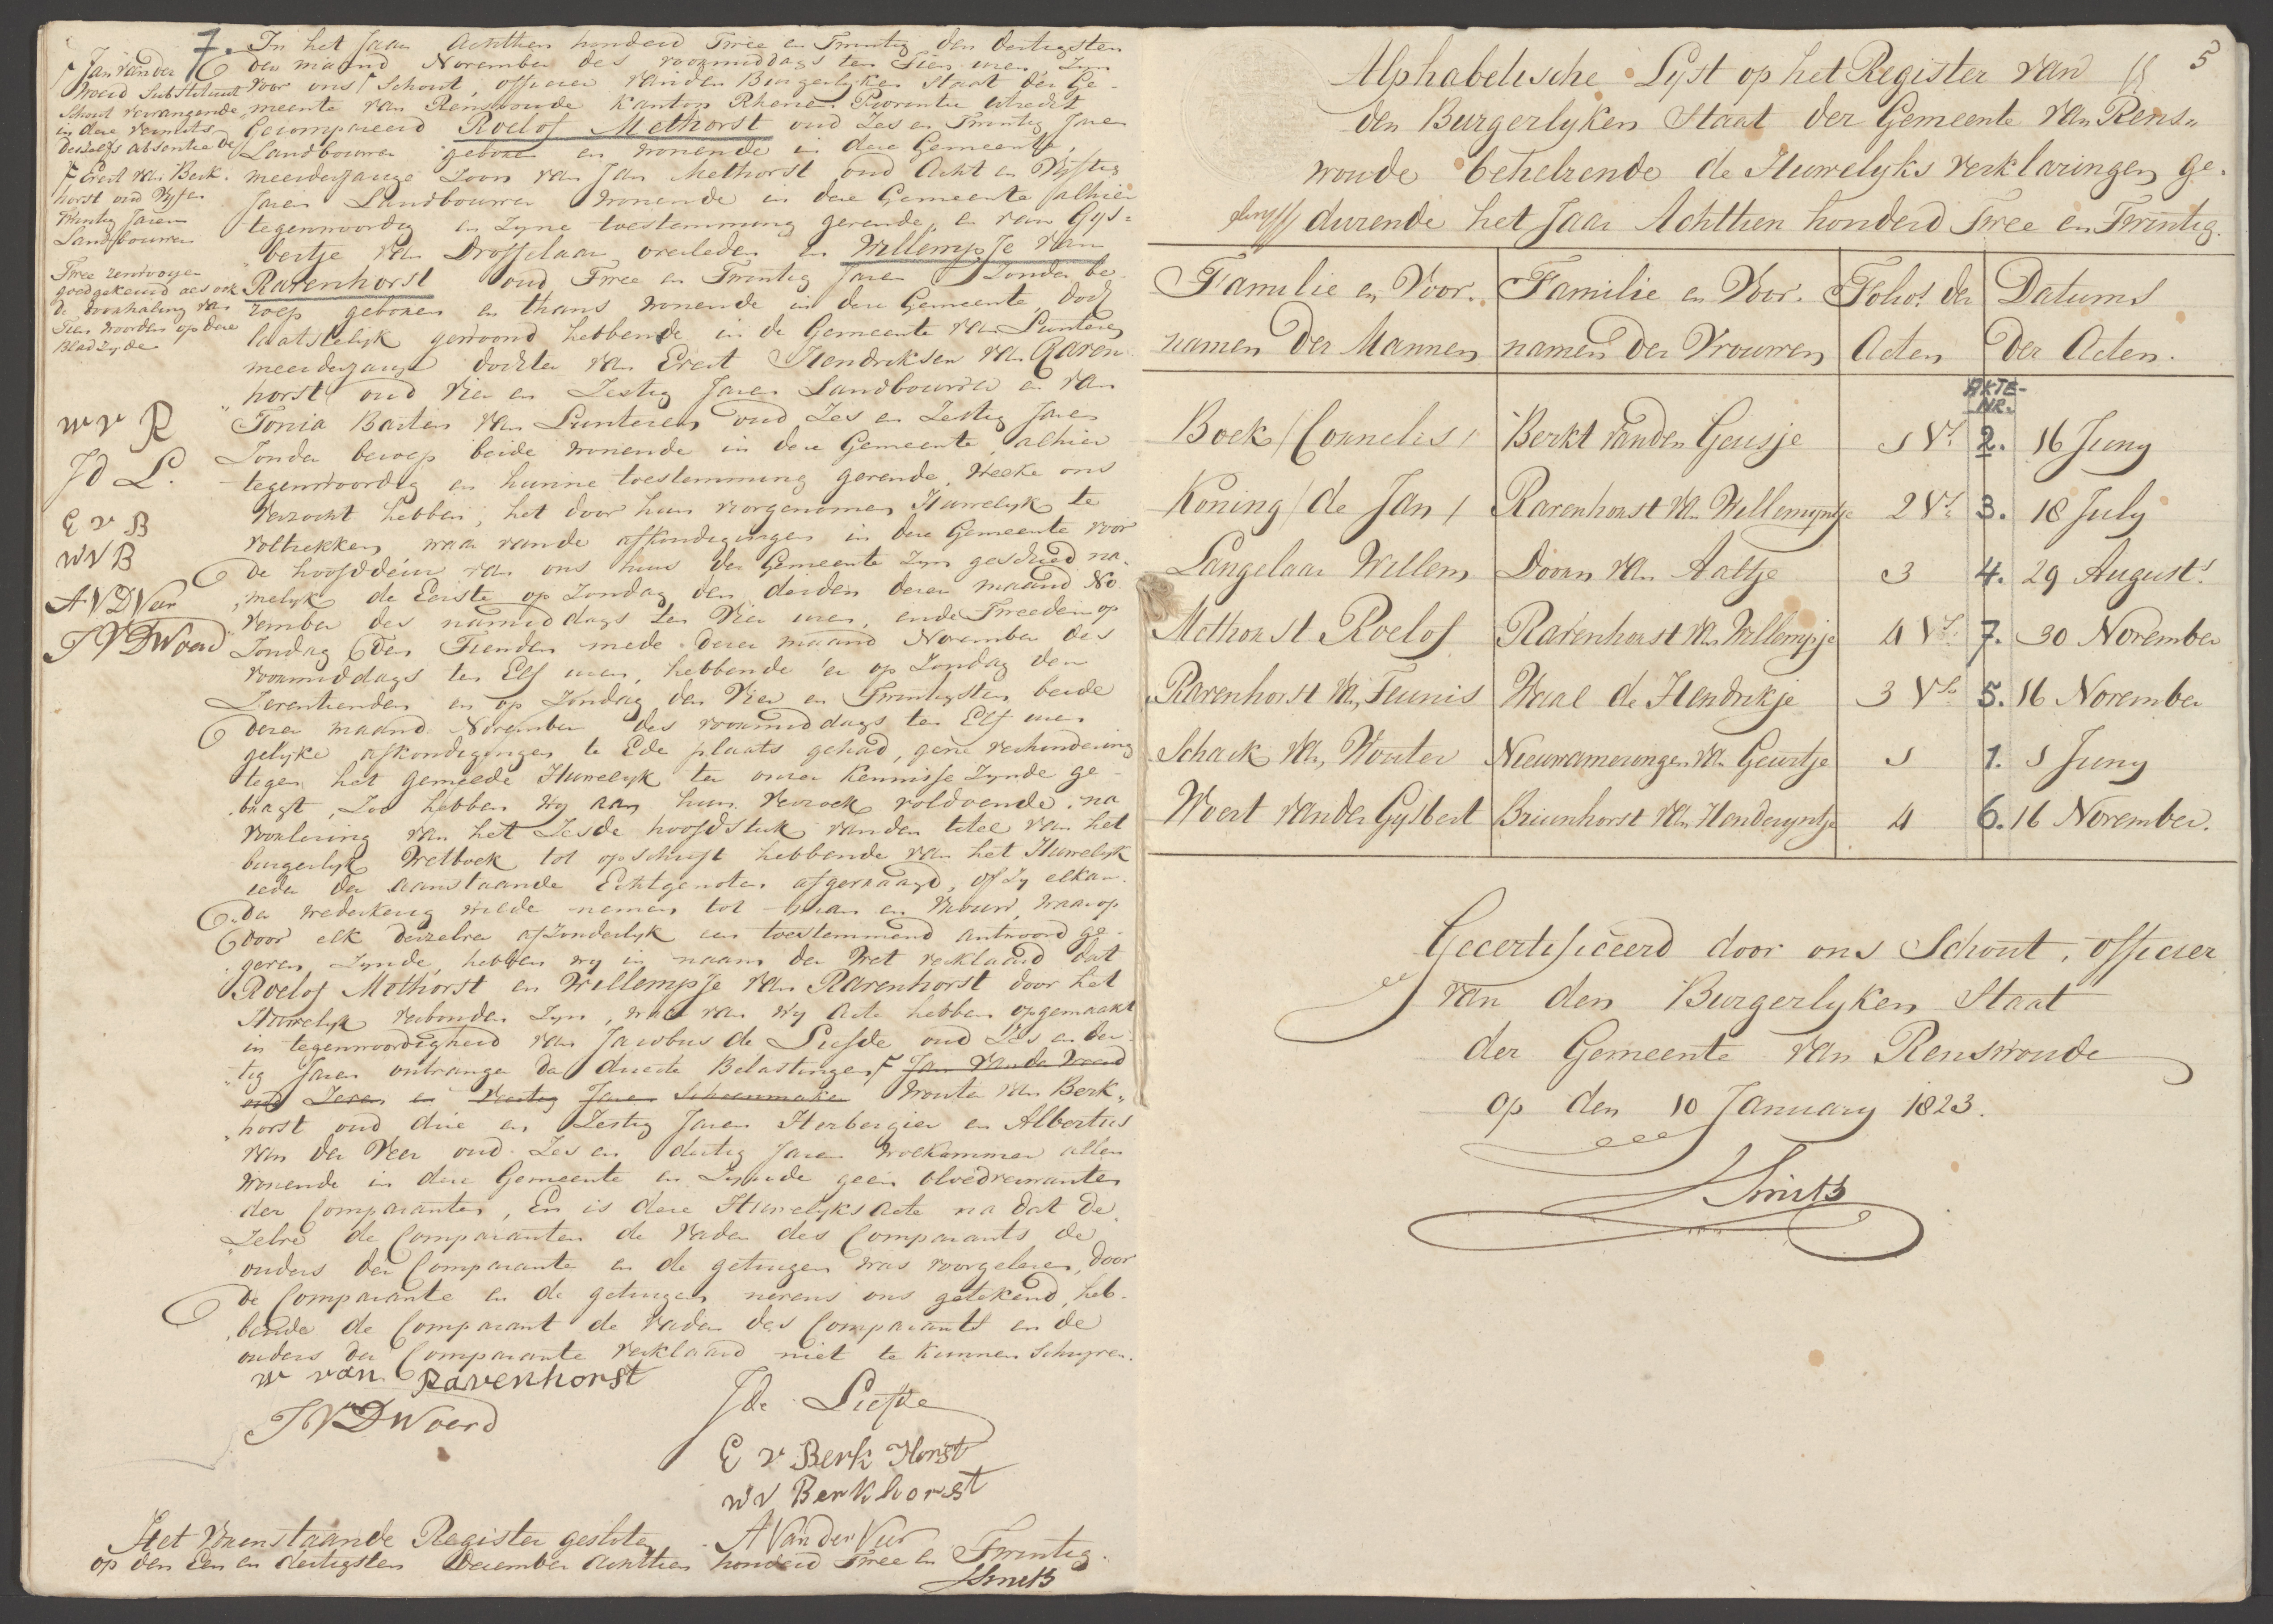 7. In het Jaar Achttien honderd Twee en Twintig den dertigsten
der maand November des voormiddags ten Tien uren Zyn
voor ons Schout, officier van den Burgerlyken Staat der Ge-
meente van Renswoude Kanton Rhenen Provintie Utrecht
Gecompareerd Roelof Methorst oud Zes en Twintig Jaren
Landbouwer geboren en wonende in deze Gemeente,
meerderjarige Zoon van Jan Methorst oud Acht en Vyftig
Jaren Landbouwer wonende in deze Gemeente alhier
tegenwoordig en Zyne toestemming gevende, en van Gys-
bertje van Drosselaar overleden en Willempje van
Ravenhorst oud Twee en Twintig Jaren Zonder be-
roep geboren en thans wonende in deze Gemeente, doch
laatstelyk gewoond hebbende in de Gemeente van Lunteren
meerderjarige dochter van Evert Hendriksen van Raven-
horst oud Vier en Zestig Jaren Landbouwer en van
Tonia Barten van Lunteren oud Zes en Zestig Jaren
Zonder beroep beide wonende in deze Gemeente, alhier
tegenwoordig en hunne toestemming gevende, Welke ons
verzocht hebben, het door hun voorgenomen Huwelyk te
voltrekken, waar van de afkondigingen in deze Gemeente voor
de hoofddeur van ons huis der Gemeente Zyn geschied na-
melyk de Eerste op Zondag den derden dezer maand No-
vember des namiddags ten Vier uren, en de Tweede op
Zondag den Tienden mede dezer maand November des
voormiddags ten Elf uren, hebbende er op Zondag den
Zeventienden en op Zondag den Vier en Twintigsten beide
dezer maand November des voormiddags ten Elf uren
gelyke afkondigingen te Ede plaats gehad, gene verhindering
tegen het gemelde Huwelyk ter onzer Kennisse Zynde ge-
bragt, Zoo hebben wy aan hun verzoek voldoende, na
voorlezing van het Zesde hoofdstuk van den titel van het
burgerlyk Wetboek tot opschrift hebbende van het Huwelyk
ieder der aanstaande Echtgenoten afgevraagd, of Zy elkan-
der wederkerig wilde nemen tot man en Vrouw, waar op
door elk dezelve afzonderlyk een toestemmend antwoord ge-
geven Zynde, hebben wy in naam der Wet verklaard dat
Roelof Methorst en Willempje van Ravenhorst door het
Huwelyk verbonden Zyn, waar van wy Acte hebben opgemaakt
in tegenwoordigheid van Jacobus de Liefde oud Zes en der-
tig Jaren ontvanger der directe Belastingen, F Jan van de Woerd
oud Zeven en Veertig Jaren Schoenmaker Wouter van Berk-
horst oud drie en Zestig Jaren Herbergier en Albertus
van der Veer oud Zes en dertig Jaren Wolkammer allen
wonende in deze Gemeente en Zynde geen bloedverwanten
der Comparanten, En is deze Huwelyks Acte na dat de
Zelve de Comparanten de Vader des Comparants de
ouders der Comparante en de getuigen was voorgelezen, door
de Comparante en de getuigen nevens ons getekend, heb-
bende de Comparant de Vader des Comparants en de
ouders der Comparante verklaard niet te kunnen Schryven.
W van Ravenhorst
J de Liefde
J V D Woerd
E v Berk Horst
W V Berkhorst
A Van der Veer
Het Vorenstaande Register gesloten
op den Een en dertigsten December Achttien honderd Twee en Twintig.
Smits
F Jan van der
Woerd Substituut
Schout vervangende
in deze vermits
deszelfs absentie de
F Evert van Berk-
horst oud Vyf en
Twintig Jaren
Landbouwer
Twee renvooyen
goedgekeurd als ook
de doorhaling van
Tien woorden op deze
Bladzyde
W v R
J d L.
E v B
W V B
A V D Veer
J V D Woerd
5
Alphabetische Lyst op het Register van
den Burgerlyken Staat der Gemeente van Rens-
woude behelzende de Huwelyks verklaringen ge-
durende het Jaar Achttien honderd Twee en Twintig.
Familie en Voor- Familie en Voor- Folios der Datums
namen der Mannen namen der Vrouwen Acten der Acten.
AKTE-
NR.
Boek / Cornelis / Berkt van den Geusje 1 Vs. 2. 16 Juny
Koning / de Jan / Ravenhorst van Willemyntje 2 Vs. 3. 18 July
Langelaar Willem Doorn van Aaltje 3 4. 29 Augusts.
Methorst Roelof Ravenhorst van Willempje 4 Vs. 7. 30 November
Ravenhorst van Teunis Waal de Hendrikje 3 Vs. 5. 16 November
Schaik van Wouter Nieuwamerongen van Geurtje 1 1. 1 Juny
Woert van der Gysbert Bruinhorst van Henderyntje 4 6. 16 November.
Gecertificeerd door ons Schout, officier
van den Burgerlyken Staat
der Gemeente van Renswoude
op den 10 January 1823.
Smits